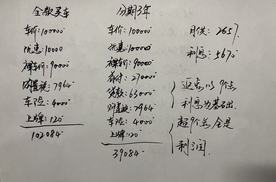 全款买车
车价:100000
优惠:10000
裸车价:90000
购置税:7964
车险:4000
上牌:120
102084
分期3年
车价:100000
优惠:10000
裸车价:90000
首付:27000
贷款:63000
购置税:7964
车险:4000
上牌:120
39084
月供:2657
利息:5670
以9个点
利息为基础,
超9个点全是
利润